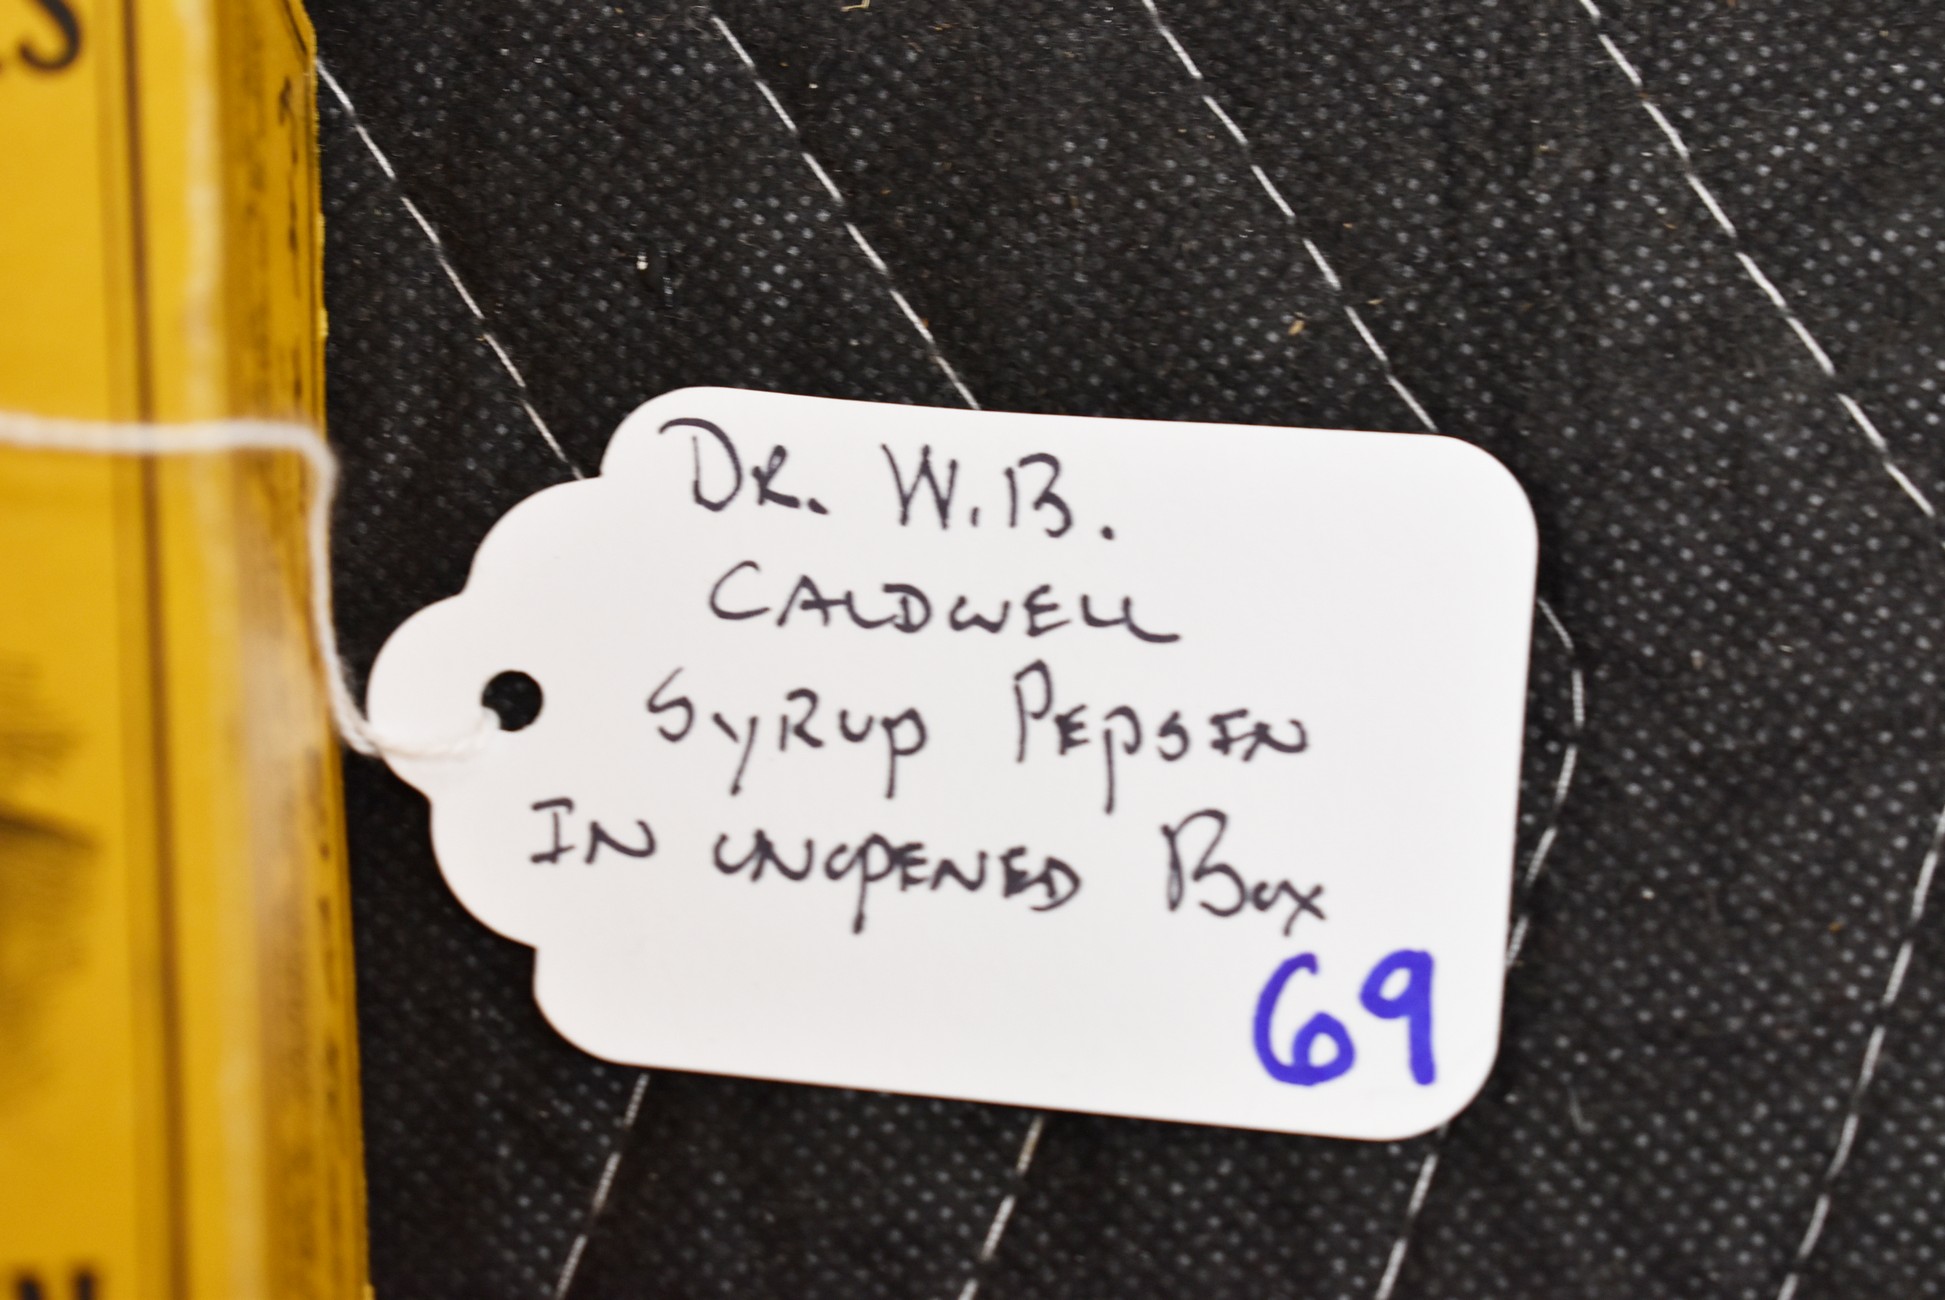 DR. W.B.
CALDWELL
SYRUP PEPSIN
IN UNOPENED BOX
69